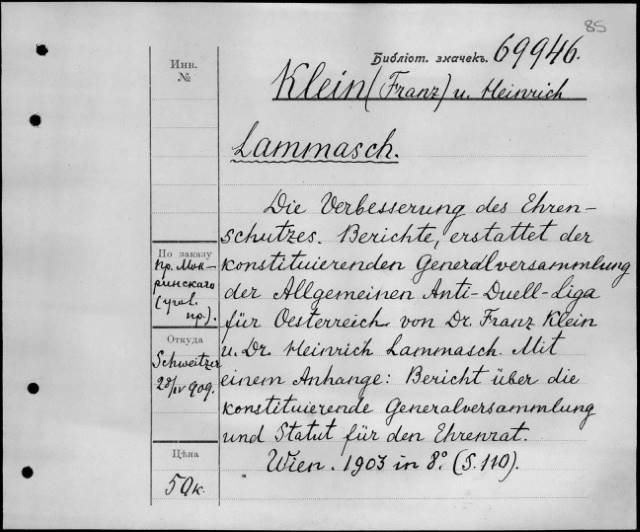 85
Библіот. значекъ. 69946.
Инв.
№
Klein (Franz) u. Heinrich
Lammasch.
Die Verbesserung des Ehren-
schutzes. Berichte, erstattet der
konstituierenden Generalversammlung
der Allgemeinen Anti-Duell-Liga
für Oesterreich von Dr. Franz Klein
u. Dr. Heinrich Lammasch. Mit
einem Anhange: Bericht über die
konstituierende Generalversammlung
und Statut für den Ehrenrat.
Wien. 1903 in 8° (S. 110).
По заказу
пр. Мок-
ринскаго
(угол.
пр.).
Откуда
Schweitzer
28/IV 909.
Цѣна
50 к.